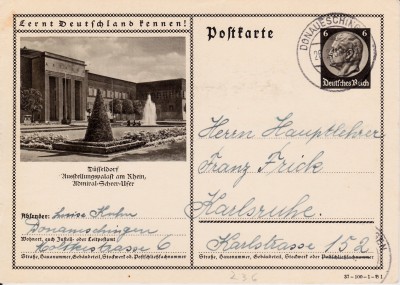 Lernt Deutschland kennen!
Postkarte
DONAUESCHIN
6 6
Deutsches Reich
Herrn Hauptlehrer
Franz Frick
Karlsruhe.
Karlstrasse 152
Düsseldorf
Ausstellungspalast am Rhein,
Admiral-Scheer-Ufer
Absender: Luise Kuhn
Donaueschingen
Wohnort, auch Zustell- oder Leitpostamt
Moltkestrasse 6
Straße, Hausnummer, Gebäudeteil, Stockwerk od. Postschließfachnummer
Straße, Hausnummer, Gebäudeteil, Stockwerk oder Postschließfachnummer
236